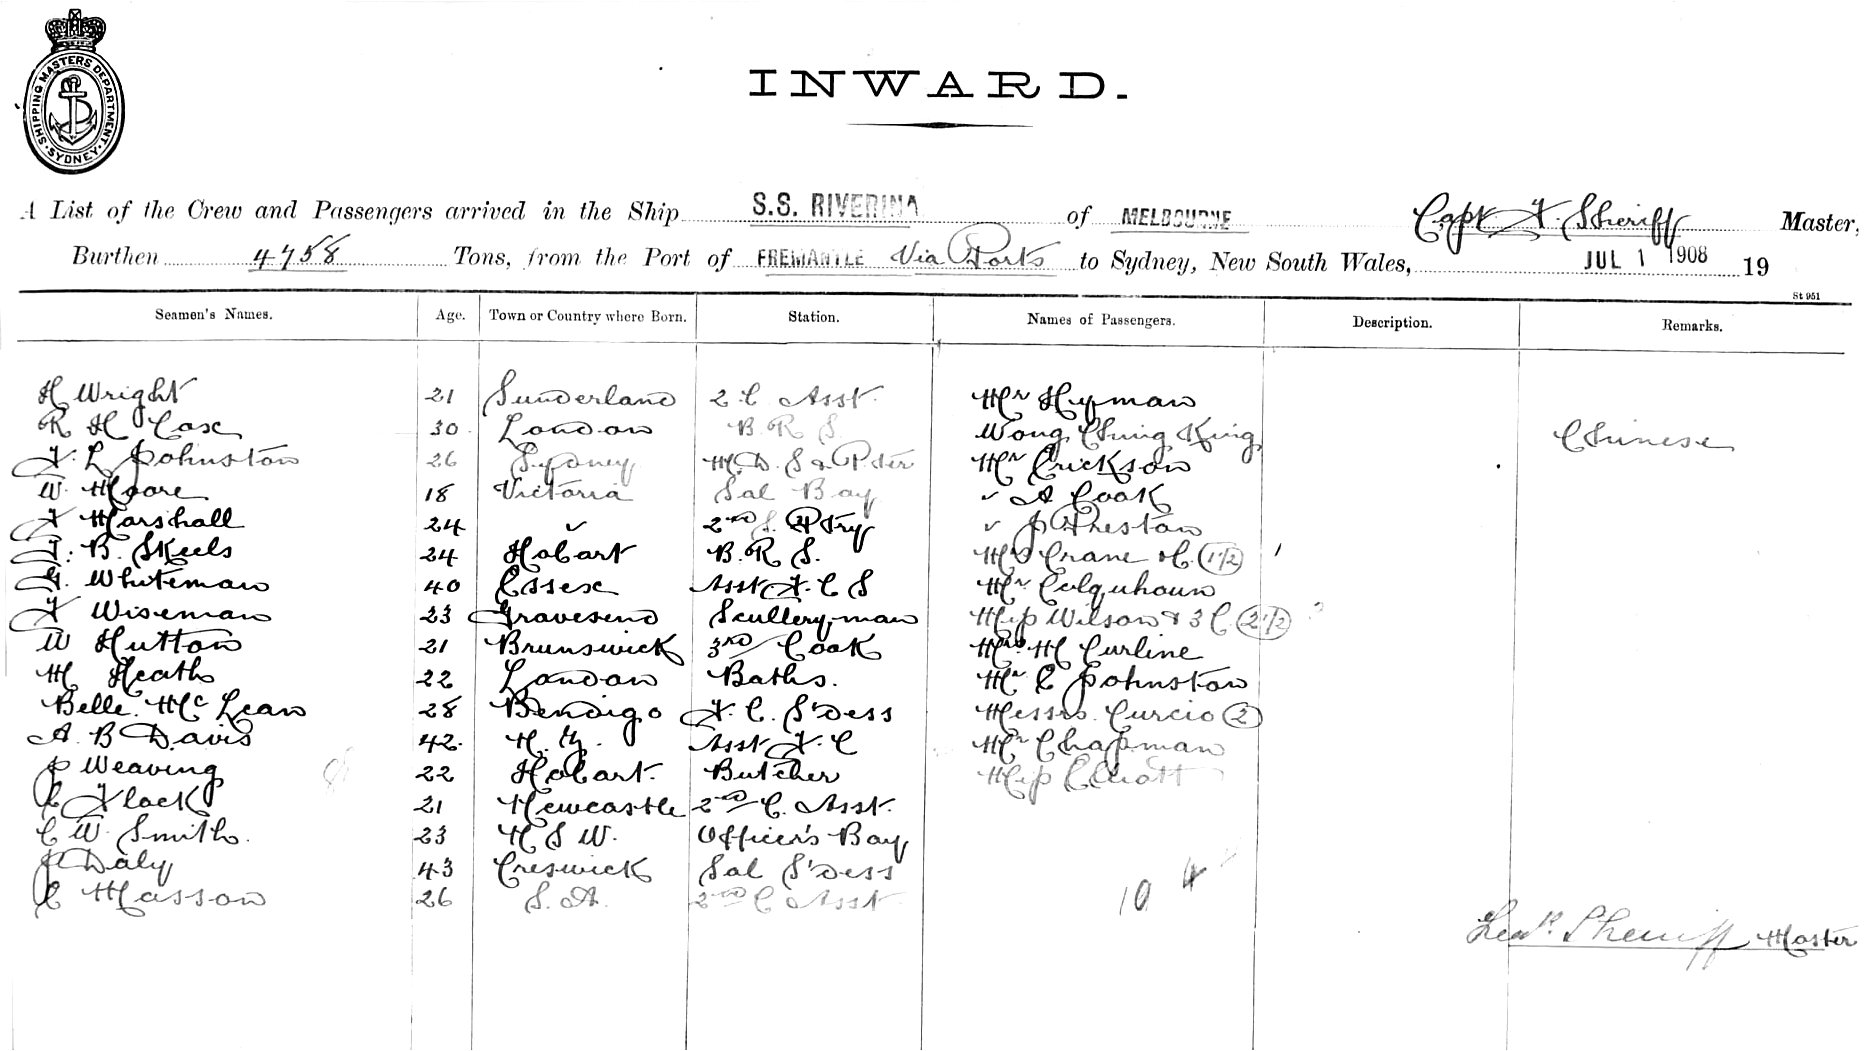 SHIPPING MASTERS DEPARTMENT. SYDNEY
INWARD.
A List of the Crew and Passengers arrived in the Ship S.S. RIVERINA of MELBOURNE Capt. F. Sheriff Master,
Burthen 4758 Tons, from the Port of FREMANTLE Via Ports to Sydney, New South Wales, JUL 1 1908 19
St 951
Seamen's Names. Age. Town or Country where Born. Station. Names of Passengers. Description. Remarks.
H Wright 21 Sunderland 2 C Asst. Mr Hyman
R H Cox 30 London B. R S. Wong Ching King Chinese
F. L Johnston 26 Sydney M. D. S & Pter Mr Erickson
W. Moore 18 Victoria Sal Bay " A Cook
F Marshall 24 " 2nd S. Ptry " J Preston
F. B. Skeels 24 Hobart B. R S. Mrs Crane & C. (1/2)
G. Whiteman 40 Essex Asst. F. C S Mr Colquhoun
F Wiseman 23 Gravesend Sculleryman Miss Wilson & 3 C (2 1/2)
W Hutton 21 Brunswick 3rd Cook Mrs M Curline
H Heath 22 London Baths. Mr C Johnston
Belle Mc Lean 28 Bendigo F. C. S'dess Messrs. Curcio (2)
A. B Davis 42. N. Z. Asst F. C Mr Chapman
J Weaving 22 Hobart. Butcher Miss Elliott
C Flack 21 Newcastle 2nd C. Asst.
C W. Smith. 23 N S W. Officer's Bay
Daly 43 Creswick Sal S'dess
C Masson 26 S. A. 2nd C Asst
10 4
Sheriff Master